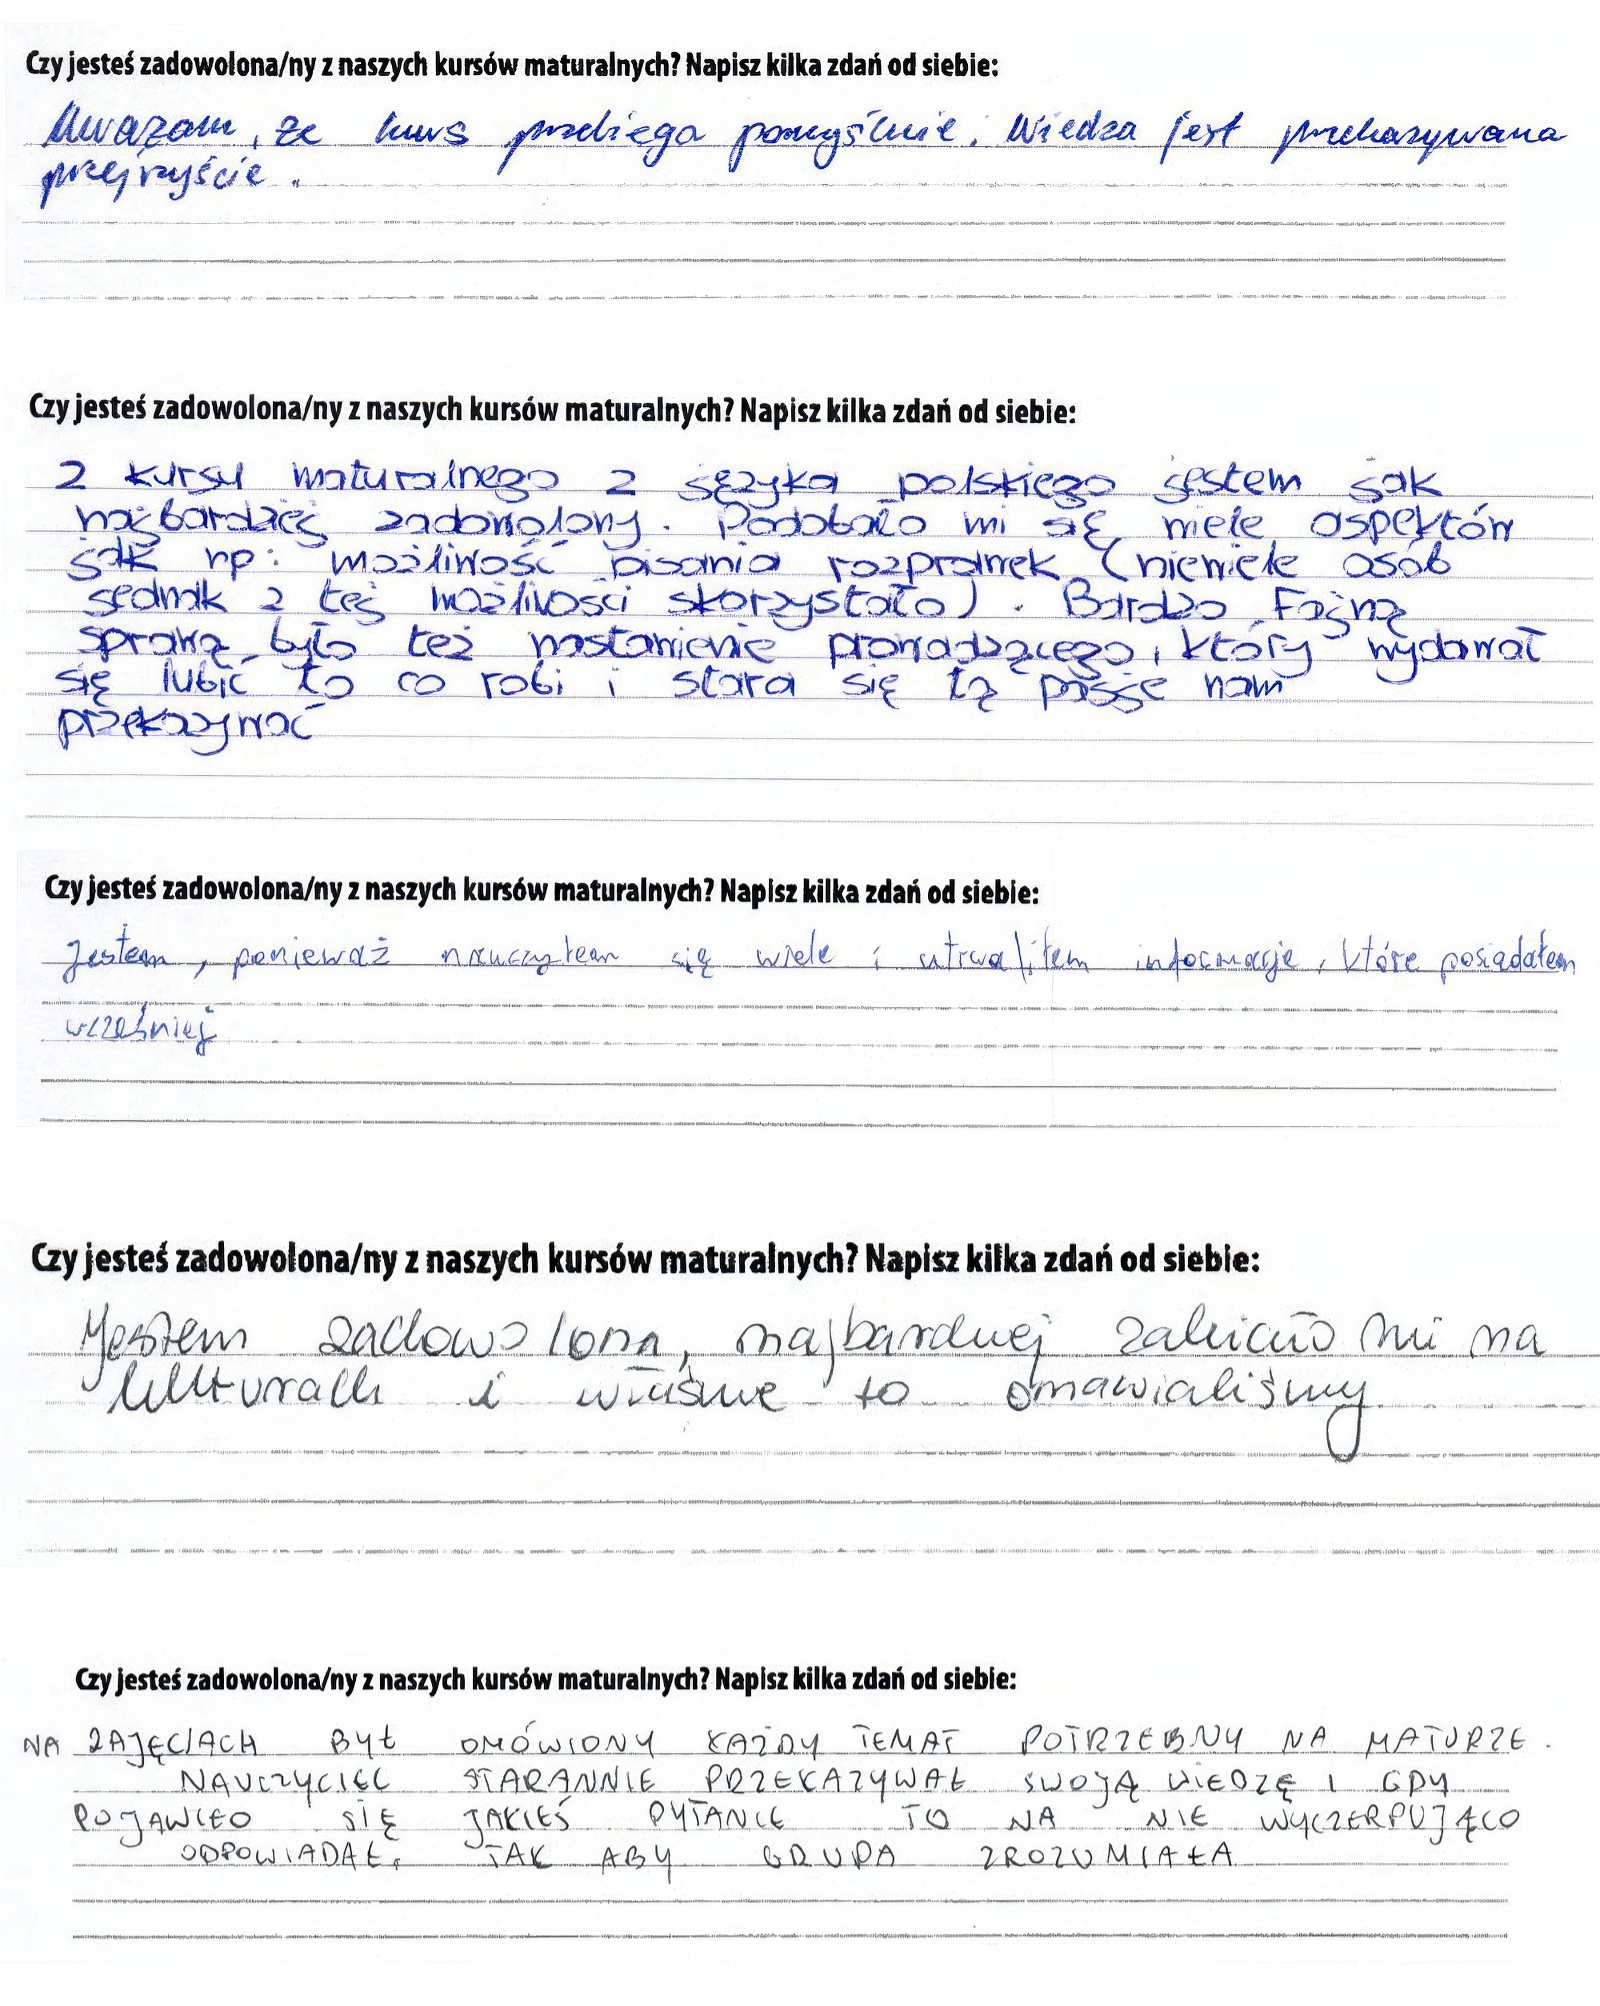 Czy jesteś zadowolona/ny z naszych kursów maturalnych? Napisz kilka zdań od siebie:
Uważam, że kurs przebiega pomyślnie. Wiedza jest przekazywana
przejrzyście.
Czy jesteś zadowolona/ny z naszych kursów maturalnych? Napisz kilka zdań od siebie:
Z kursu maturalnego z języka polskiego jestem jak
najbardziej zadowolony. Podobało mi się wiele aspektów
jak np: możliwość pisania rozprawek (niewiele osób
jednak z tej możliwości skorzystało). Bardzo fajną
sprawą było też nastawienie prowadzącego, który wydawał
się lubić to co robi i stara się tą pasję nam
przekazywać
Czy jesteś zadowolona/ny z naszych kursów maturalnych? Napisz kilka zdań od siebie:
Jestem, ponieważ nauczyłem się wiele i utrwaliłem informacje, które posiadałem
wcześniej
Czy jesteś zadowolona/ny z naszych kursów maturalnych? Napisz kilka zdań od siebie:
Jestem zadowolona, najbardziej zależało mi na
lekturach i właśnie to omawialiśmy
Czy jesteś zadowolona/ny z naszych kursów maturalnych? Napisz kilka zdań od siebie:
NA ZAJĘCIACH BYŁ OMÓWIONY KAŻDY TEMAT POTRZEBNY NA MATURZE.
NAUCZYCIEL STARANNIE PRZEKAZYWAŁ SWOJĄ WIEDZĘ I GDY
POJAWIŁO SIĘ JAKIEŚ PYTANIE TO NA NIE WYCZERPUJĄCO
ODPOWIADAŁ, TAK ABY GRUPA ZROZUMIAŁA